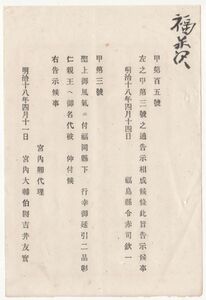 甲第百五號
左之甲第三號之通吿示相成候條此旨吿示候事
明治十八年四月十四日
福島縣令赤司欽一
甲第三號
聖上御風氣ニ付福岡縣下 行幸御延引二品彰
仁親王ヘ御名代被 仰付候
右吿示候事
明治十八年四月十一日
宮內卿代理
宮內大輔伯爵吉井友實